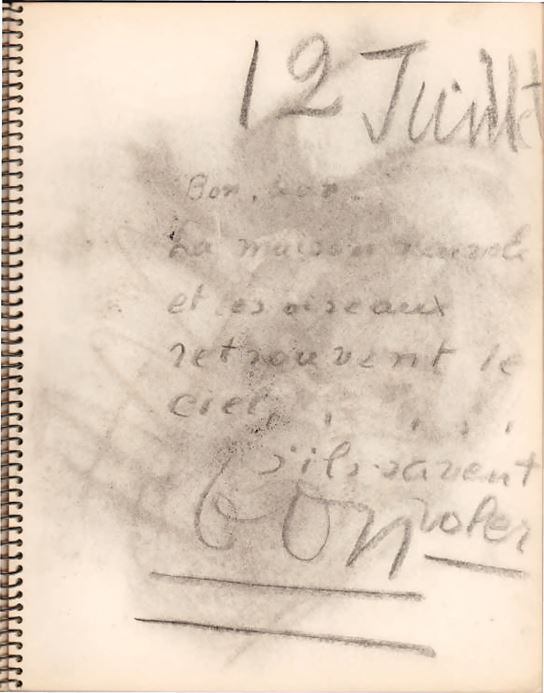 12 Juillet
Bon, bon.
La maison
et les oiseaux
retrouvent le
ciel,
s'ils savent
voler